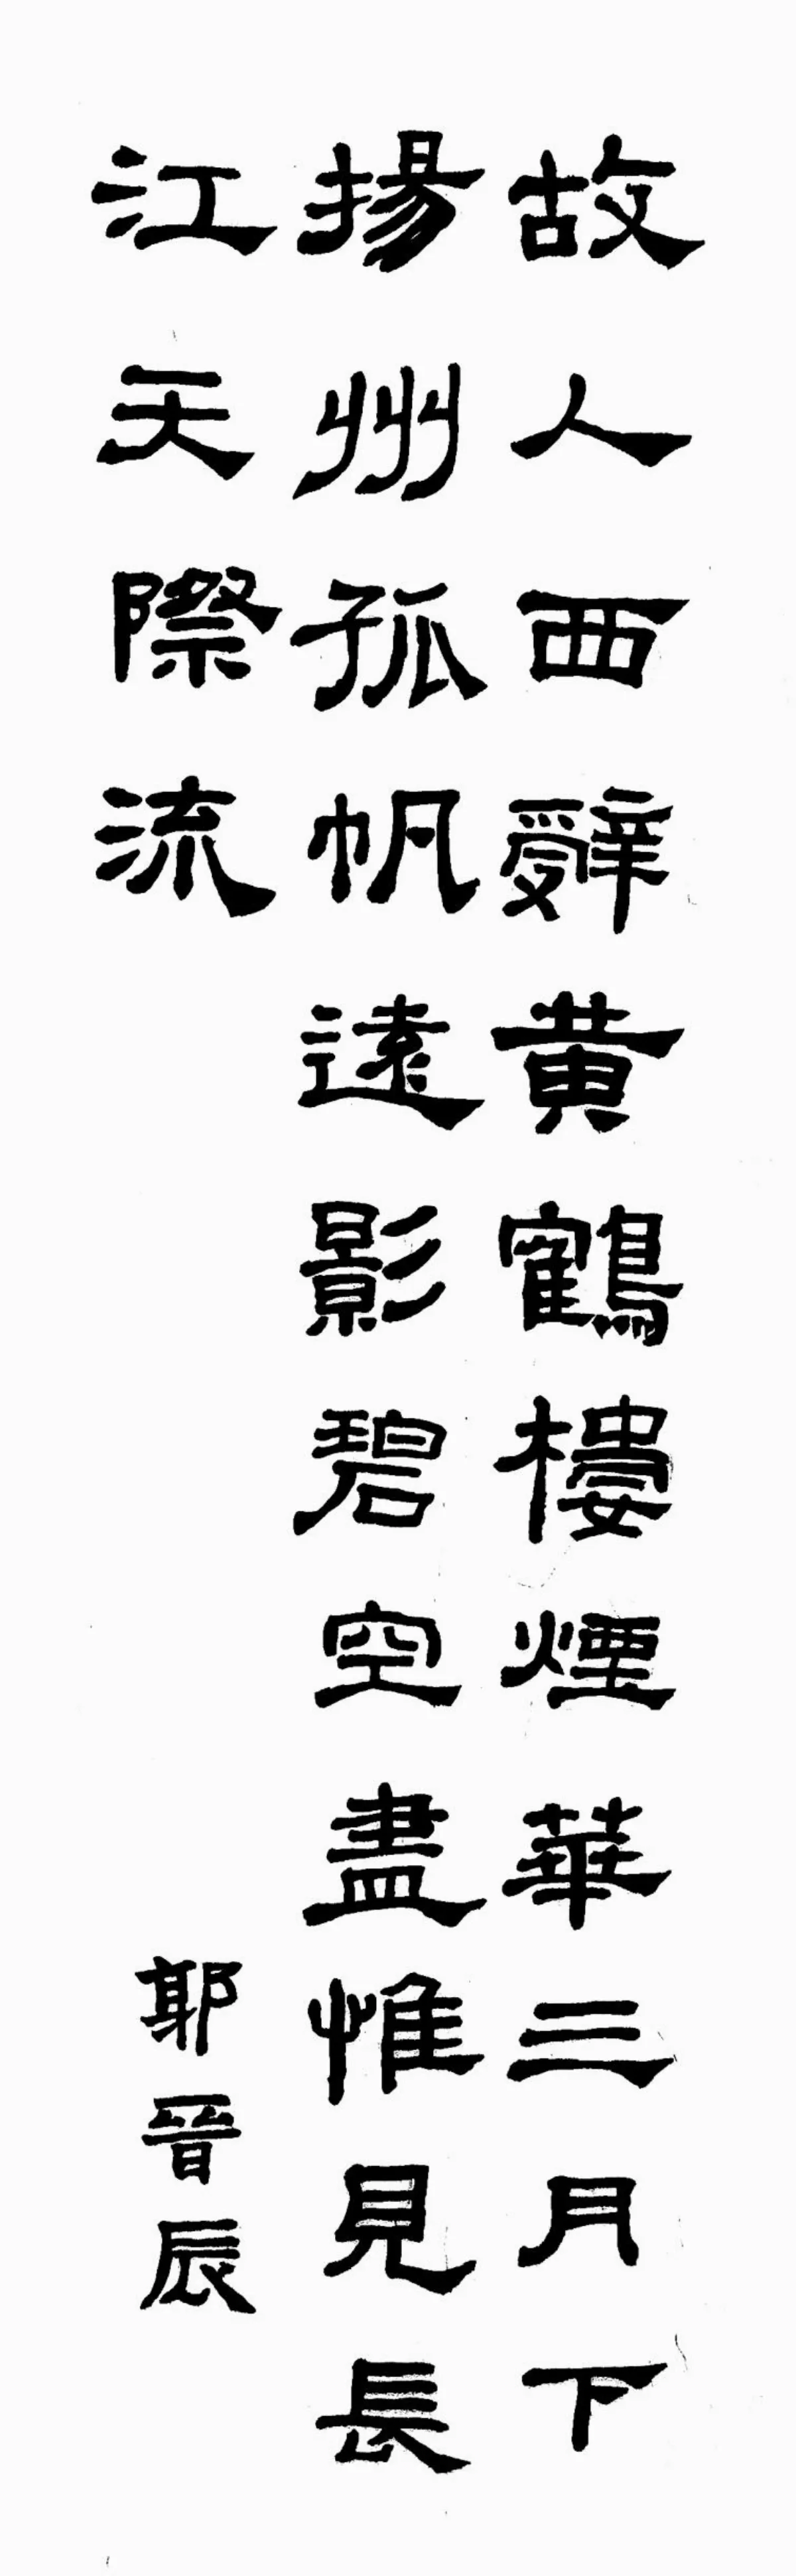 故人西辭黃鶴樓煙華三月下
揚州孤帆遠影碧空盡惟見長
江天際流
郭晉辰